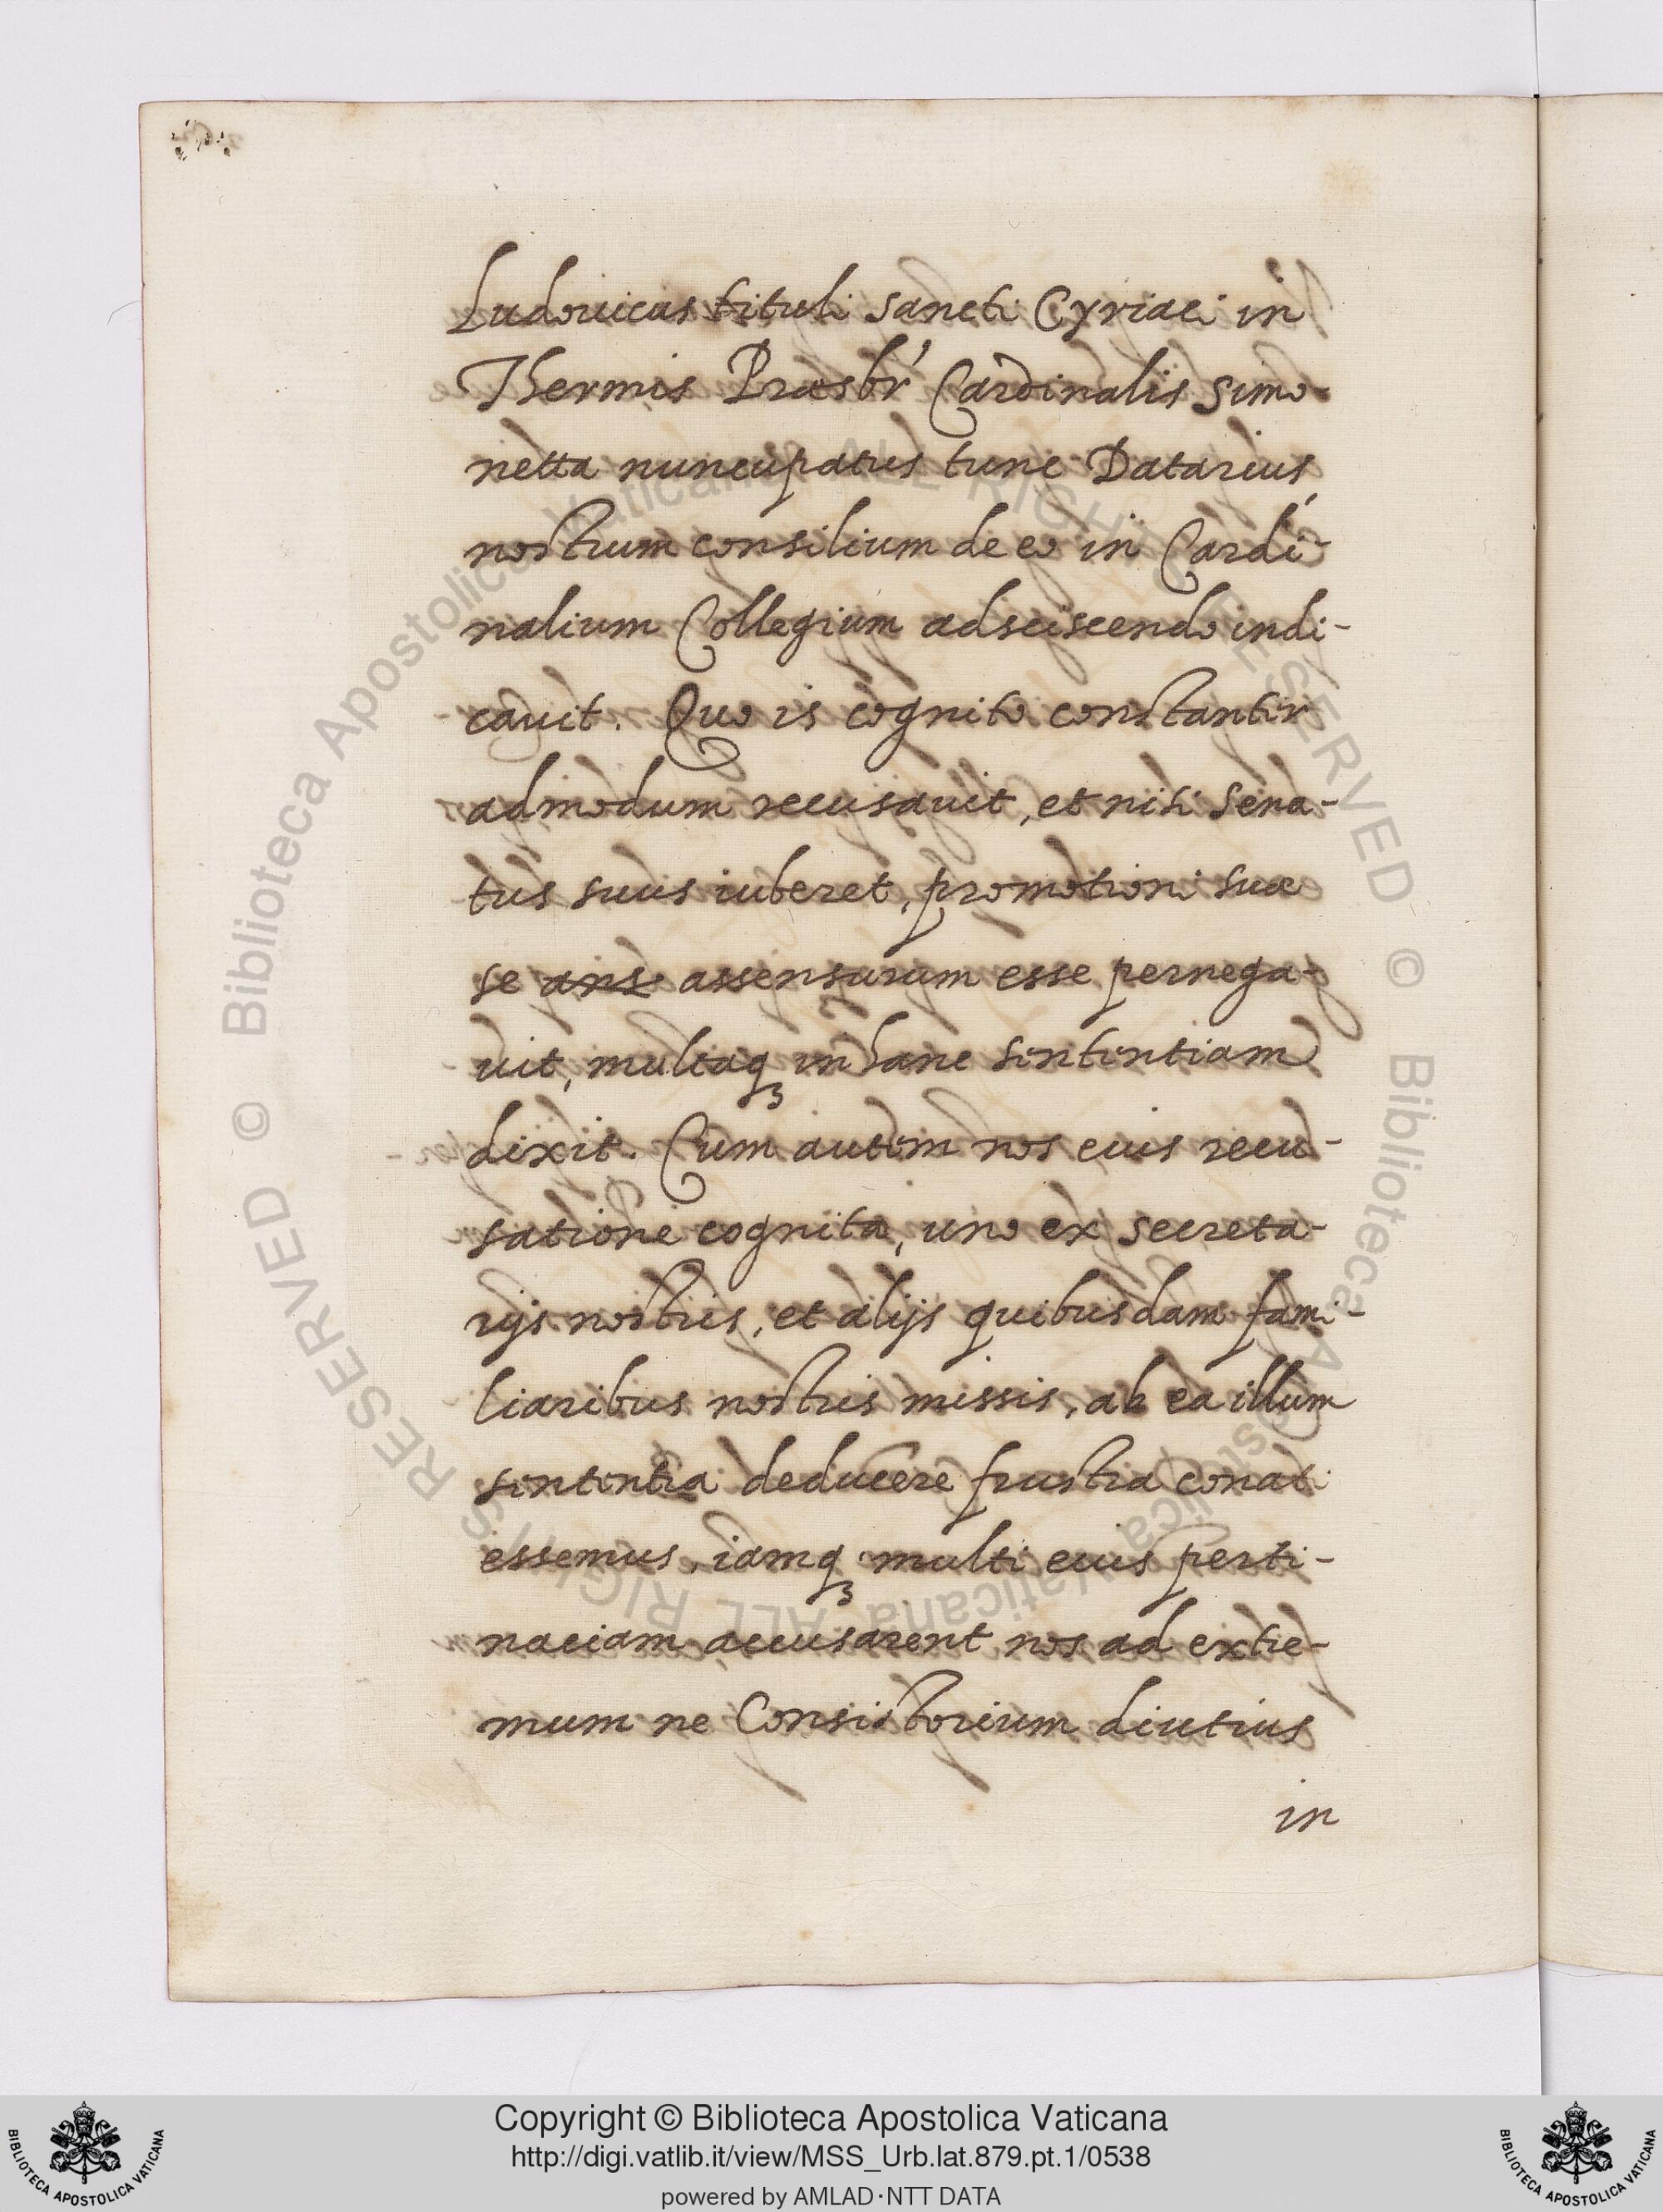 Ludouicus tituli sancti Cyriaci in
Thermis Præsbr' Cardinalis Simo-
netta nuncupatus tunc Datarius
nostrum consilium de eo in Cardi-
nalium Collegium adsciscendo indi-
cauit. Quo is cognito constanter
admodum recusauit, et nisi Sena-
tus suus iuberet, promotioni suæ
se ans assensurum esse pernega-
uit, multaq in hanc sententiam
dixit. Cum autem nos eius recu-
satione cognita, uno ex secreta-
rijs nostris, et alijs quibusdam fami-
liaribus nostris missis, ab ea illum
sententia deducere frustra conati
essemus, iamq multi eius perti-
naciam accusarent nos ad extre-
mum ne Consistorium diutius
in
© Biblioteca Apostolica Vaticana ALL RIGHTS RESERVED
© Biblioteca Apostolica Vaticana ALL RIGHTS RESERVED
Copyright © Biblioteca Apostolica Vaticana
http://digi.vatlib.it/view/MSS_Urb.lat.879.pt.1/0538
powered by AMLAD·NTT DATA
BIBLIOTECA APOSTOLICA VATICANA
BIBLIOTECA APOSTOLICA VATICANA